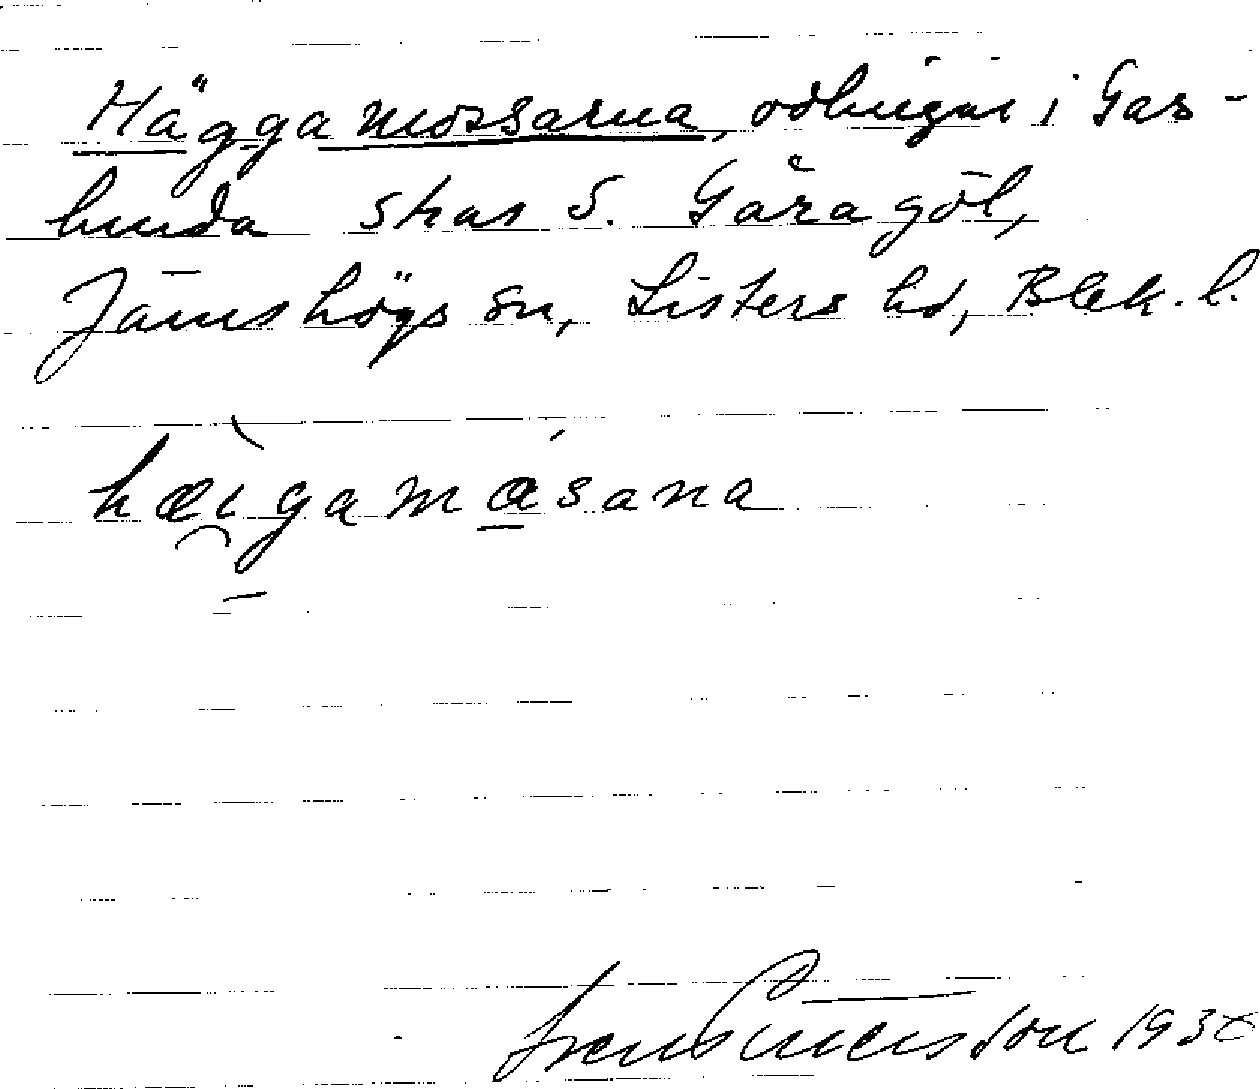 Häggamossarna, odlingar i Gas-
lunda skas S. Gåragöl,
Jämshögs sn, Listers hd, Blek. l.
hæigamåsana
Svensson 193